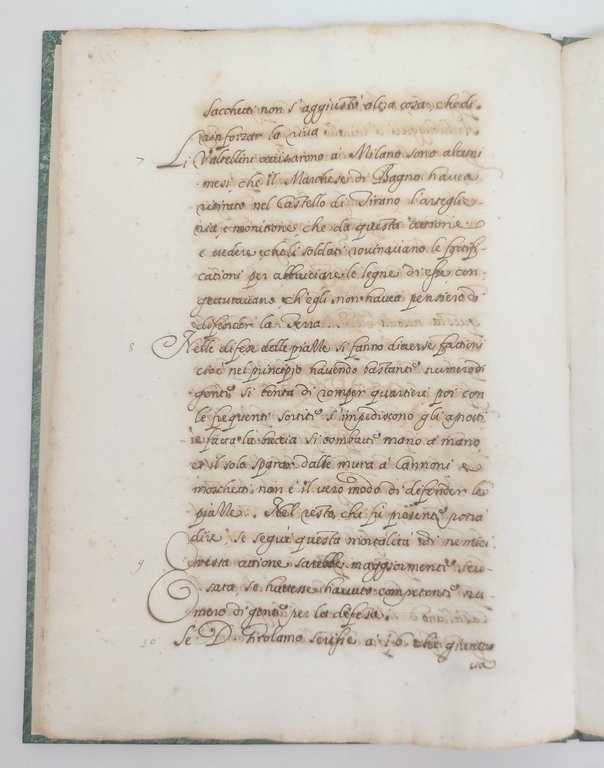 Sacchetti non s'aggiustò altra cosa che di
rinforzar la riva
7 Li Valtellini avvisarono a Milano sono alcuni
mesi che il Marchese di Bagno havea
ritirato nel Castello di Tirano l'arteglie
ria, e monitione che da questa attione
e vedere che li soldati rovinavano le fortifi
cationi per abbruciare le legne di esse con-
gietturavano ch'egli non havea pensiero di
difender la Terra.
8 Nelle difese delle piazze si fanno diverse fattioni
cioè nel principio havendo bastante numero di
gente si tenta di romper quartieri poi con
le frequenti sortite s'impediscono gli aprocci
e fatta la breccia si combatte mano a mano
et il solo sparar dalle mura a Cannoni e
moschetti non è il vero modo di defender le
piazze. Nel resto chi fu presente potrà
dire se seguì questa mortalità di nemici.
9 Questa attione sarebbe maggiormente scu-
sata se havesse havuto competente nu-
mero di gente per la difesa.
10 Se D. Girolamo scrisse a i 6 che giunse